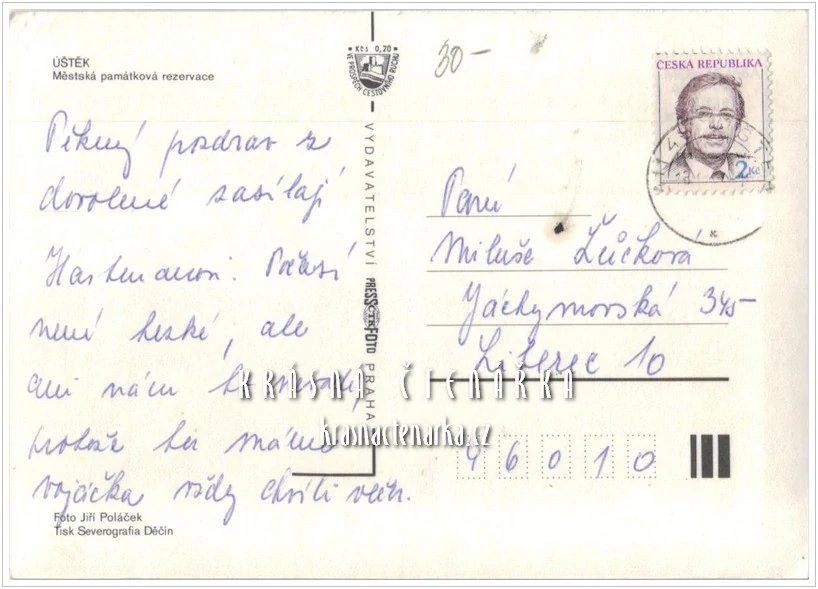 ÚŠTĚK
Městská památková rezervace
Kčs 0,20
VE PROSPĚCH CESTOVNÍHO RUCHU
30-
ČESKÁ REPUBLIKA
2 Kč
Pěkný pozdrav z
dovolené zasílají
Hartmanovi. Počasí
není hezké, ale
ani nám to nevadí,
protože tu máme
vojáčka vždy chvíli
VYDAVATELSTVÍ PRESSFOTO PRAHA
ČTK
Paní
Miluše Žůčková
Jáchymovská 345
Liberec 10
46010
KRÁSNÁ ČTENÁŘKA
kramactenarka.cz
Foto Jiří Poláček
Tisk Severografia Děčín